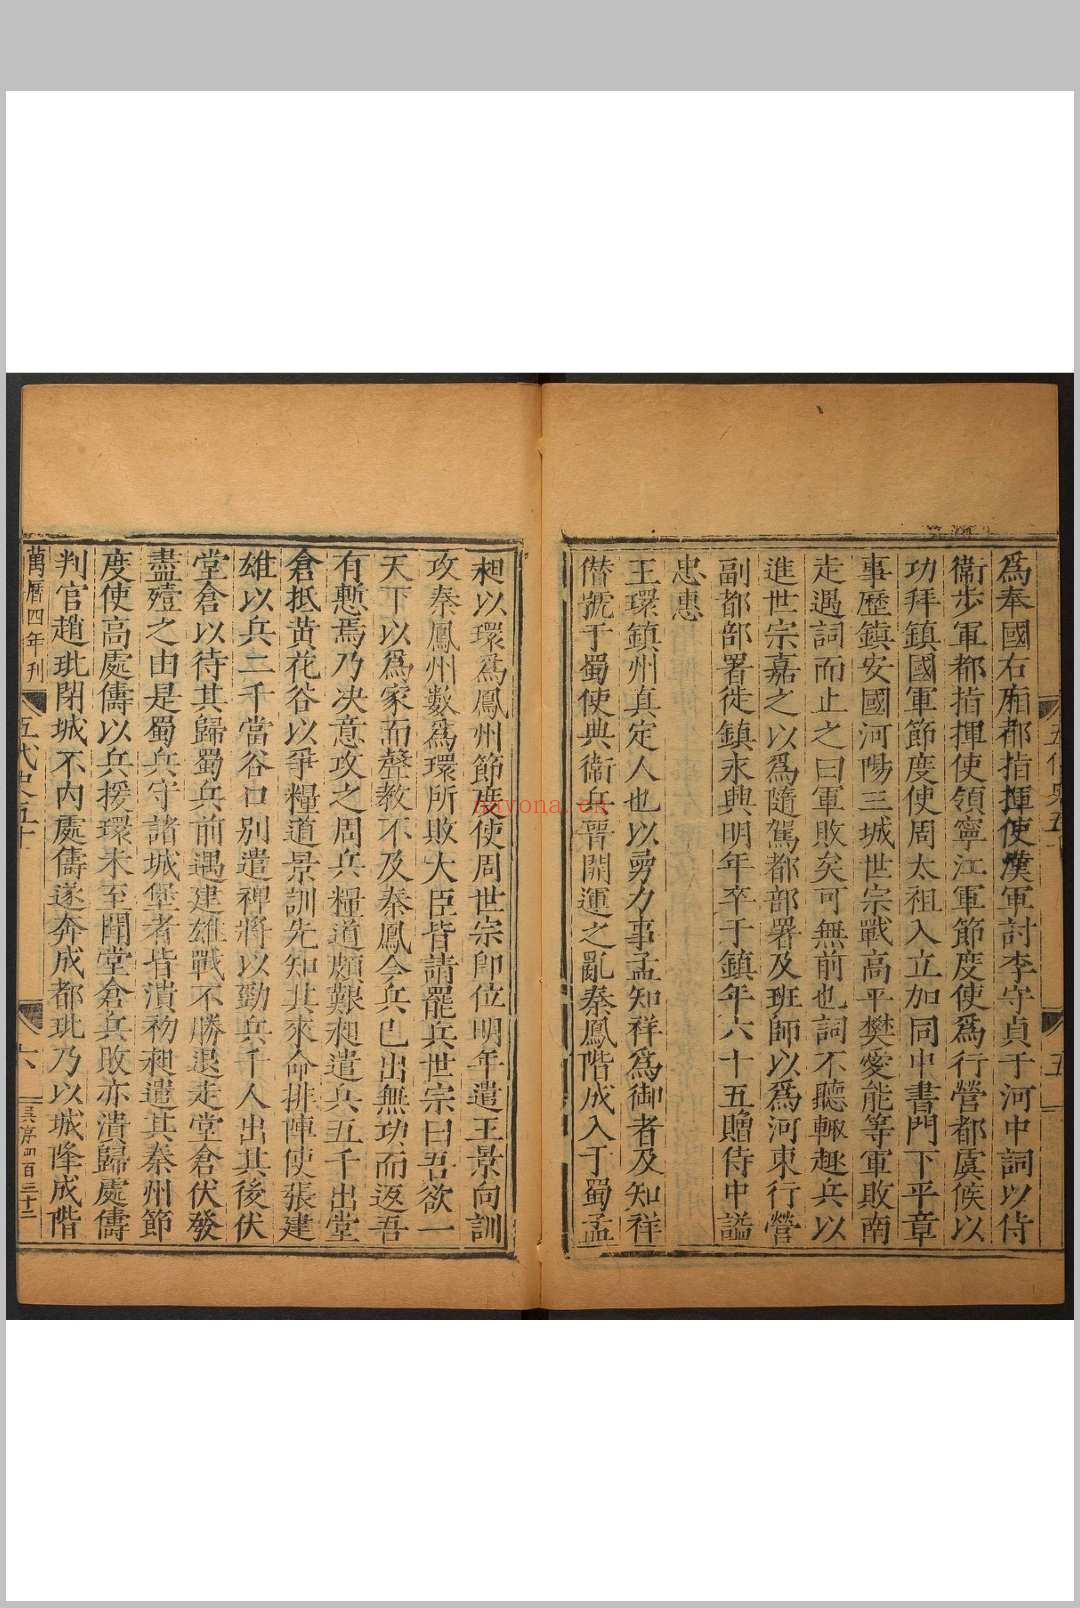 爲奉國右廂都指揮使漢軍討李守貞于河中詞以侍
衞步軍都指揮使領寧江軍節度使爲行營都虞候以
功拜鎮國軍節度使周太祖入立加同中書門下平章
事歷鎮安國河陽三城世宗戰高平樊愛能等軍敗南
走遇詞而止之曰軍敗矣可無前也詞不聽輙趣兵以
進世宗嘉之以爲隨駕都部署及班師以爲河東行營
副都部署徙鎮永興明年卒于鎮年六十五贈侍中謚
忠惠
王環鎮州真定人也以勇力事孟知祥爲御者及知祥
僣號于蜀使典衞兵晉開運之亂秦鳳階成入于蜀孟
昶以環爲鳳州節度使周世宗卽位明年遣王景向訓
攻秦鳳州數爲環所敗大臣皆請罷兵世宗曰吾欲一
天下以爲家而聲教不及秦鳳今兵已出無功而返吾
有慙焉乃决意攻之周兵糧道頗艱昶遣兵五千出堂
倉抵黃花谷以爭糧道景訓先知其來命排陣使張建
雄以兵二千當谷口别遣裨將以勁兵千人出其後伏
堂倉以待其歸蜀兵前遇建雄戰不勝退走堂倉伏發
盡殪之由是蜀兵守諸城堡者皆潰初昶遣其秦州節
度使高處儔以兵援環未至聞堂倉兵敗亦潰歸處儔
判官趙玭閉城不内處儔遂奔成都玭乃以城降成階
萬曆四年刊
五代史五十
六
五
nayona.cn